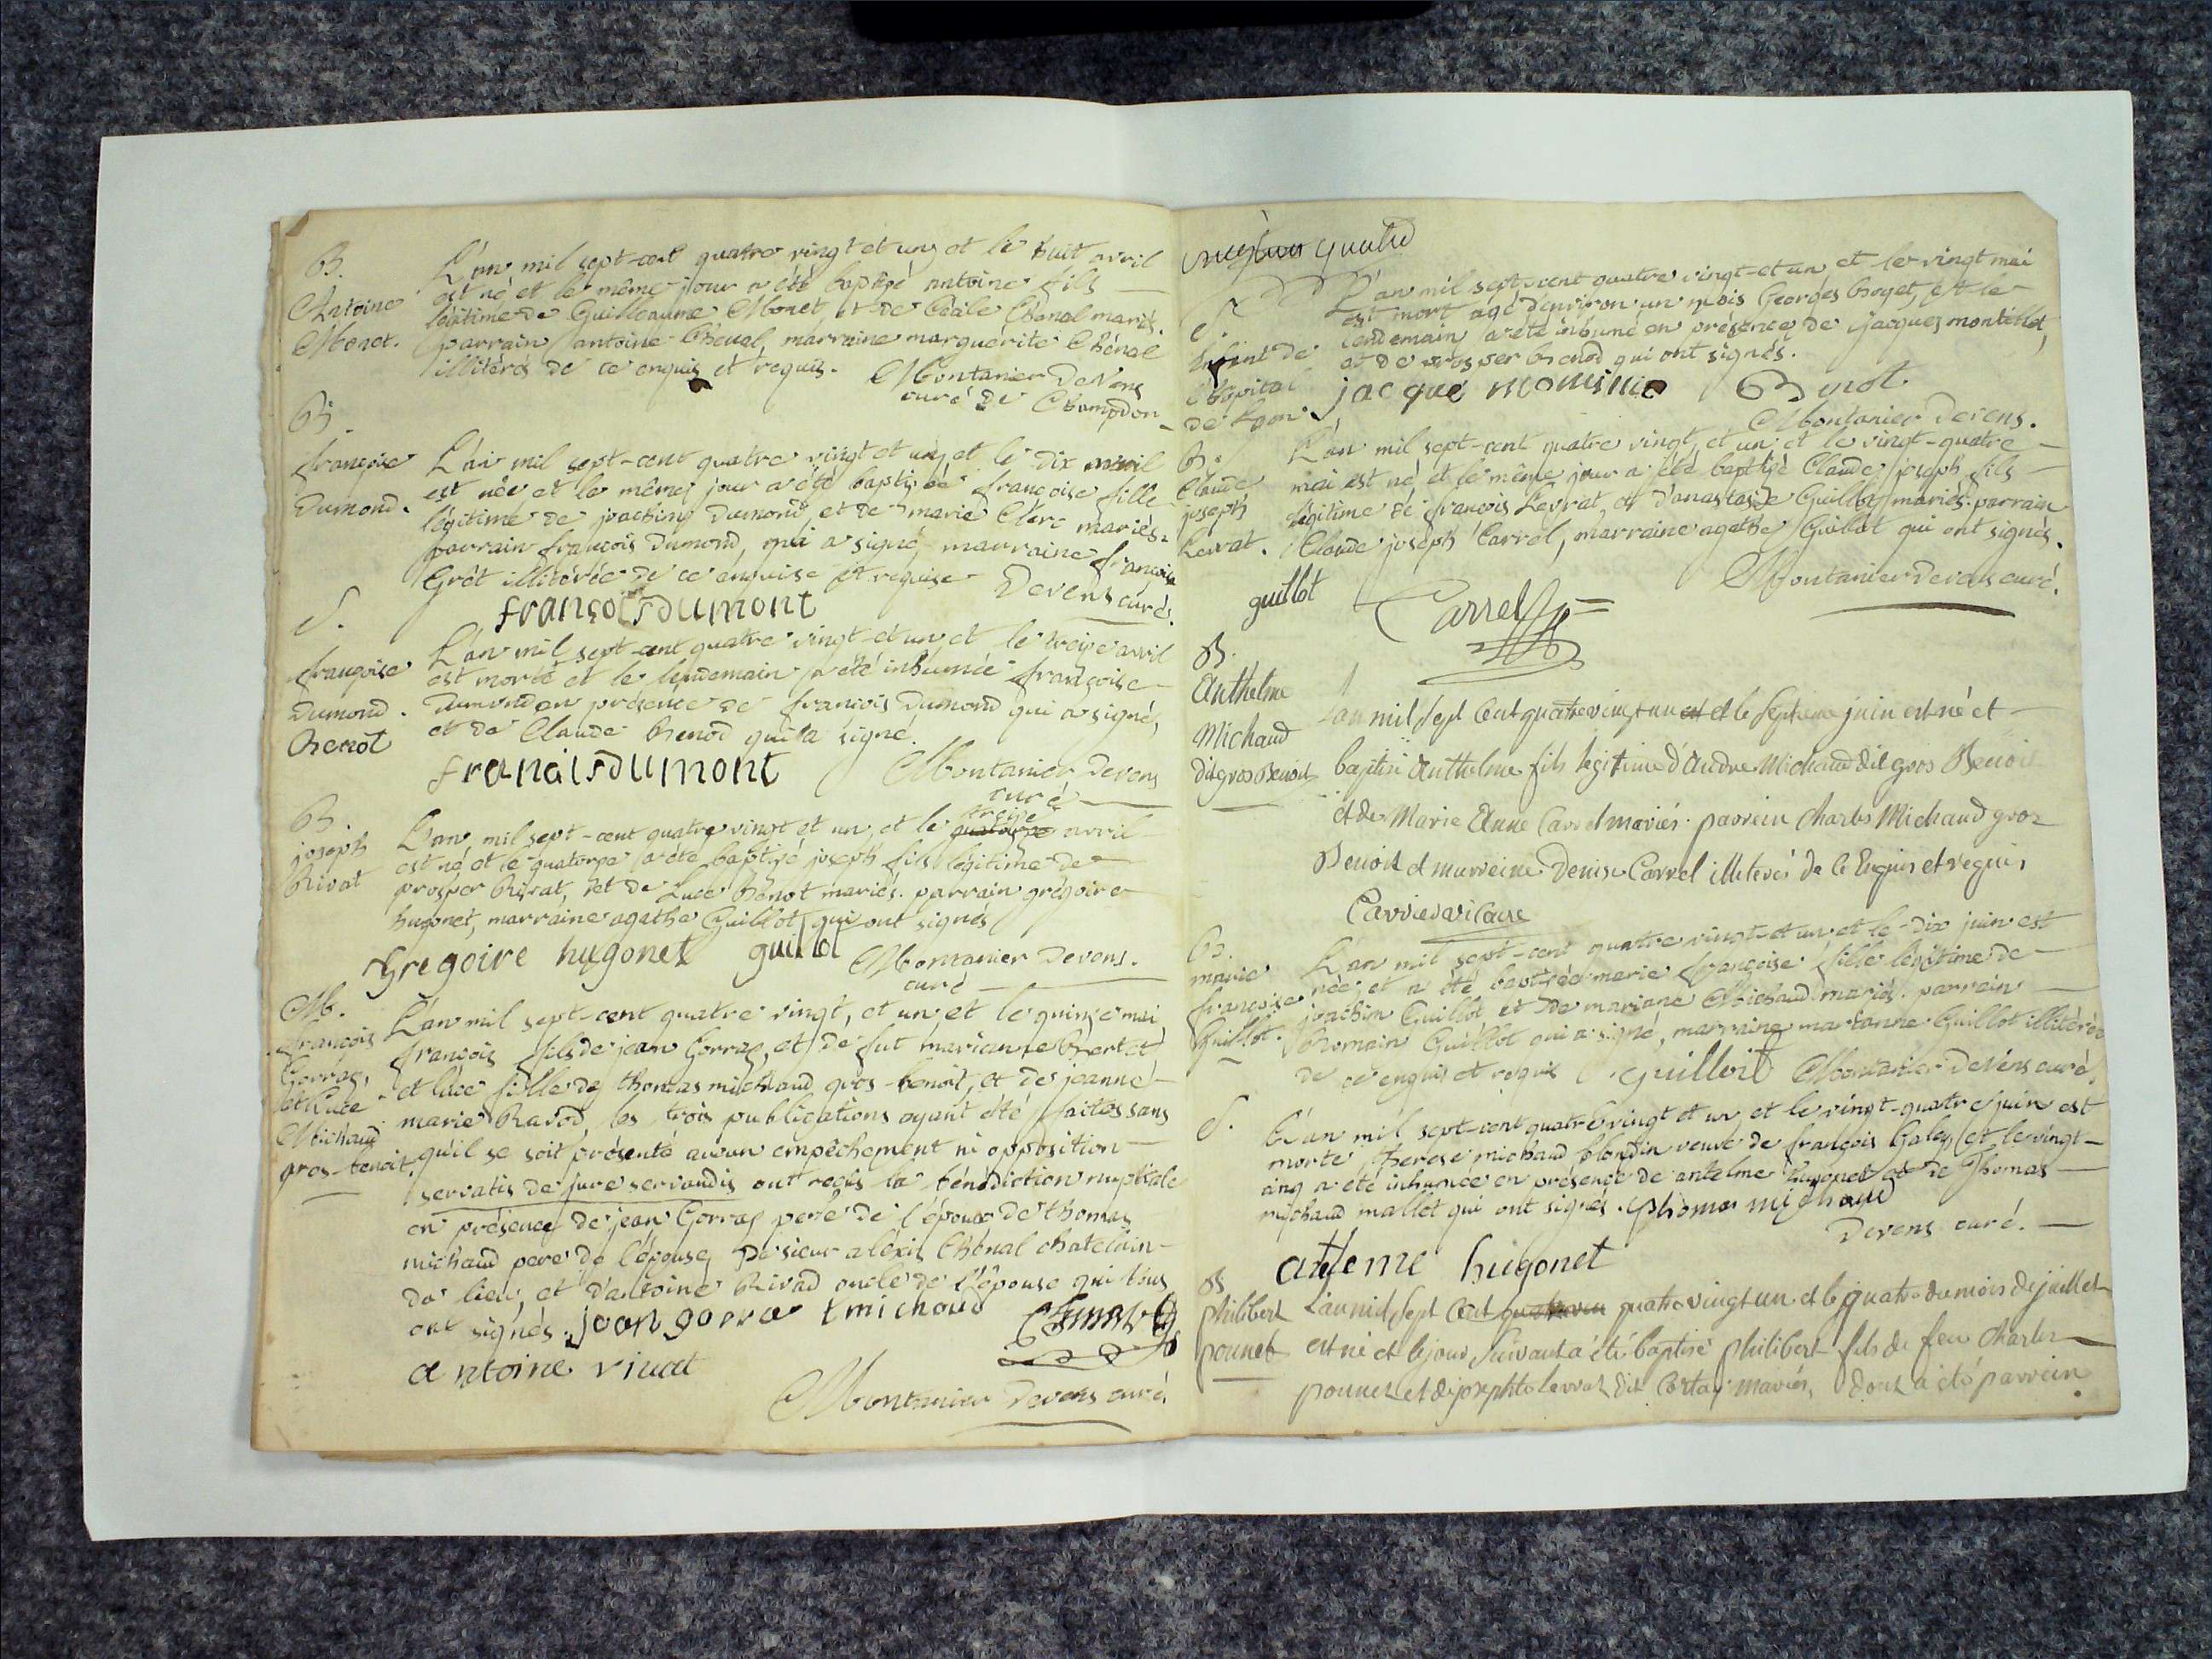 B.
Antoine
Monet.
L'an mil sept-cent quatre vingt et un, et le huit avril
est né et le même jour a été baptisé antoine fils
légitime de Guilleaume Monet, et de Cécile Chenal mariés.
parrain antoine Cheval, marraine marguérite Chénal
illitérés de ce enquis et requis. Montanier Devens
curé de Champdor
B.
françoise
Dumond.
L'an mil sept-cent quatre vingt et un, et le dix avril
est née et le même jour a été baptisée françoise fille
légitime de joachim Dumond, et de marie Clerc mariés.
parrain françois Dumond, qui a signé, marraine françoise
Grét illitérée de ce enquise et requise. Devens curé.
françois Dumont
S.
françoise
Dumond.
Benot
L'an mil sept-cent quatre vingt-et un et le treize avril
est morte et le lendemain a été inhumée françoise
Dumond en présence de françois Dumond qui a signé,
et de Claude Benod qui a signé.
francais Dumont Montanier Devens
curé
B.
joseph
Rivat
L'an mil sept-cent quatre vingt et un, et le quatorze treize avril
est né et le quatorze a été baptisé joseph fils légitime de
prosper Rivat, et de Luce Benot mariés. parrain grégoire
hugonet, marraine agathe Guillot qui ont signés
Gregoire hugonet guillot Montanier Devens.
curé
M.
françois
Gorraz,
et Luce
Michaud
gros-benoit.
L'an mil sept-cent quatre vingt, et un et le quinze mai
françois fils de jean Gorraz, et de fut marianne Bertet
et luce fille de thomas michaud gros-benoit, et de jeanne
marie Ravod, les trois publications ayant été faites sans
qu'il se soit présenté aucun empêchement ni opposition
servatis de jure servandis ont reçus la bénédiction nuptiale
en présence de jean Gorraz pere de l'époux de thomas
michaud pere de l'épouse, de sieur aléxis Chénal chatelain
du lieu, et d'antoine Rivad oncle de l'épouse qui tous
ont signés. jean gorra t michaud
antoine rivat
Montanier Devens curé.
quatre
S.
Enfant de
l'hopital
de Lyon.
L'an mil sept-cent quatre vingt-et un, et le vingt mai
est mort agé d'environ un mois Georges boget, et le
lendemain a été inhumé en présence de jacques montillet,
et de prosper benod qui ont signés.
jacque Benot
Montanier Devens.
B.
Claude
joseph
Levrat.
L'an mil sept-cent quatre vingt, et un et le vingt-quatre
mai est né et le même jour a été baptisé Claude joseph fils
légitime de françois Levrat, et d'anastasie Guillot mariés. parrain
Claude joseph Carrel, marraine agathe Guillot qui ont signés.
guillot Carrel Montanier Devens curé.
B.
Anthelme
Michaud
dit gros Benoit
L'an mil sept Cent quatre vingt un et et le septieme juin est né et
baptisé Anthelme fils légitime d'Andre Michaud dit gros Benoit
et de Marie Anne Carrel mariés. parrein Charles Michaud gros
Benoit et marreine Denise Carrel illeterés de ce Enquis et requis
Carrier vicaire
B.
marie
françoise
Guillot.
L'an mil sept-cent quatre vingt-et un et le dix juin est
née, et a été baptisée marie françoise fille légitime de
joachim Guillot et de mariane Michaud mariés. parrain
Romain Guillot qui a signé, marraine marianne Guillot illitérée
de ce enquis et requis guilloit Montanier Devens curé,
S.
L'an mil sept-cent quatre vingt et un et le vingt-quatre juin est
morte, therese michaud blondin veuve de françois Galey, et le vingt-
cinq a été inhumée en présence de antelme hugonet et de Thomas
michaud mallet qui ont signés. thomas michaud
Devens curé.
anteme hugonet
B.
philibert
pounet
L'an mil sept Cent quatrevin quatre vingt un et le quatre du mois de juillet
est né et le jour suivant a été baptisé philibert fils de feu Charles
pounet et de josephte levrat dit Cortay mariés, dont a été parrein